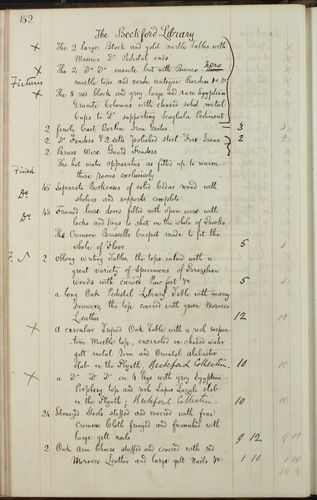 152
The Beckford Library
× The 2 large Black and gold marble Tables with
Massive Do Pedestal ends
× The 2 Do Do ensuite but with Bianco Nero
marble tops and verde antique Borders &c &c
Fixture
× The 8 red black and grey large and rare Egyptian
Granite Columns with chased solid metal
Caps to Do supporting Scagliola Pediment
2 finely Cast Berlin Iron Grates 3
2 Do Fenders & 2 setts polished steel Fire Irons 2 2
2 Brass Wire Guard Fenders
The hot water apparatus as fitted up to warm
these rooms exclusively
Fixture
Do 45 Separate Bookcases of solid Cedar wood with
shelves and supports complete
Do 45 Framed loose doors filled with open wire with
locks and keys to shut in the whole of Books
The Crimson Brussells Carpet made to fit the
whole of Floor 5
F. N 2 Oblong Writing Tables, the tops inlaid with a
great variety of Specimens of Brazilian
Woods with carved Paw feet &c 5
a long Oak Pedestal Library Table with many
drawers, the top covered with green Morocco
Leather 12
× a circular shaped Oak Table with a rich
Marble top, encircled in chased water
gilt metal Rim and Oriental alabaster
Slab in the Plynth, Beckford Collection. 10 10
× a Do Do Do on 4 legs with grey Egyptian
Porphery top and rich Lapis Lazuli slab
in the Plynth; Beckford Collection. 10 10
24 Stools stuffed and covered with fine
Crimson Cloth fringed and furnished with
large gilt nails 9 12 9 12
2 Oak Arm Chairs stuffed and covered with red
Morocco Leather and large gilt nails &c 1 10 1 10